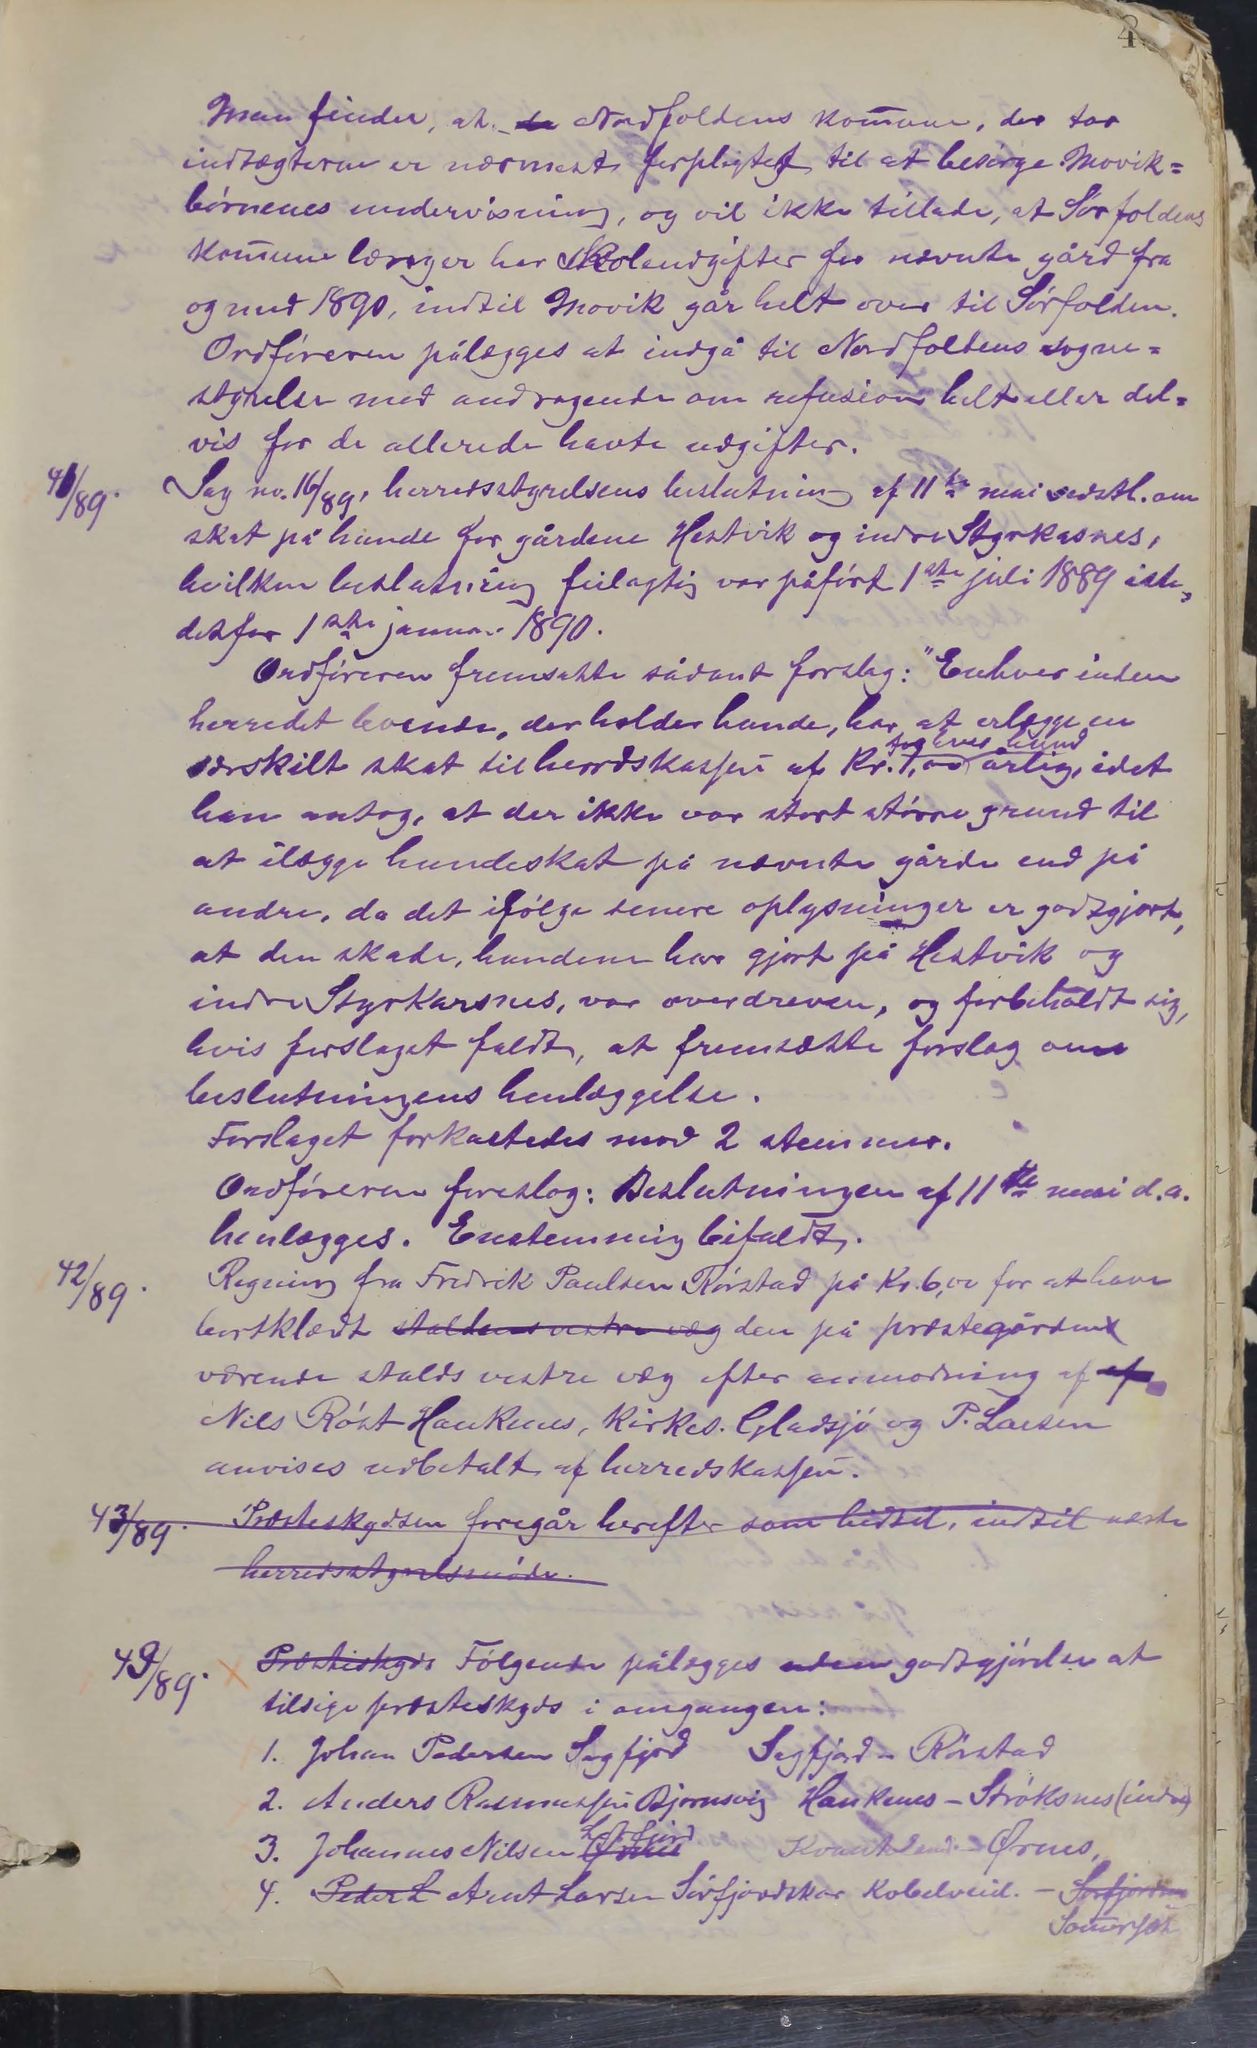 Man finder, at de Nordfoldens kom̄une, der tar
indtægterne er nærmest forpligtet til at besørge Movik=
børnenes undervisning, og vil ikke tillade, at Sørfoldens
kom̄une længer har skoleudgifter for nævnte gård fra
og med 1890, indtil Movik går helt over til Sørfolden.
Ordføreren pålægges at indgå til Nordfoldens sogne=
styrelse med andragende om refusion helt eller del=
vis for de allerede havte udgifter.
41/89. Sag no. 16/89, herredsstyrelsens beslutning af 11te mai sidstl. om
skat på hunde for gårdene Hestvik og indre Styrkasnes,
hvilken beslutning feilagtig var påført 1ste juli 1889 iste=
detfor 1ste januar 1890.
Ordføreren fremsatte sådant forslag: "Enhver inden
herredet boende, der holder hunde, har at erlægge en
særskilt skat til herredskassen af Kr. 1,00 for hver hund årlig, idet
han antog, at der ikke var stort større grund til
at ilægge hundeskat på nævnte gårde end på
andre, da det ifølge senere oplysninger er godtgjort,
at den skade, hundene har gjort på Hestvik og
indre Styrkarsnes, var overdreven, og forbeholdt sig,
hvis forslaget faldt, at fremsætte forslag om
beslutningens henlæggelse.
Forslaget forkastedes mod 2 stemmer.
Ordføreren foreslog: Beslutningen af 11te mai d.a.
henlægges. Enstemmig bifaldt.
42/89. Regning fra Fredrik Paulsen Rørstad på Kr. 6,00 for at have
bortklædt staldens vestre væg den på præstegården
værende stalds vestre væg efter anmodning af af
Nils Røst Haukenes, Kirkes. Gladsjø og P. Larsen
anvises udbetalt af herredskassen.
43/89. Præsteskydsen foregår herefter som hidtil, indtil næste
herredsstyrelsesmøde.
43/89. Præsteskyds Følgende pålægges uden godtgjørelse at
tilsige præsteskyds i omgangen:
1. Johan Pedersen Sagfjord Sagfjord – Rørstad
2. Anders Rasmussen Bjørnsvig Haukenes – Strøksnes (indre)
3. Johannes Nilsen Ørnes,
4. Peder L Arnt Larsen Sørfjordskar Kobelveid. – Sørfjorden
Som̄erset